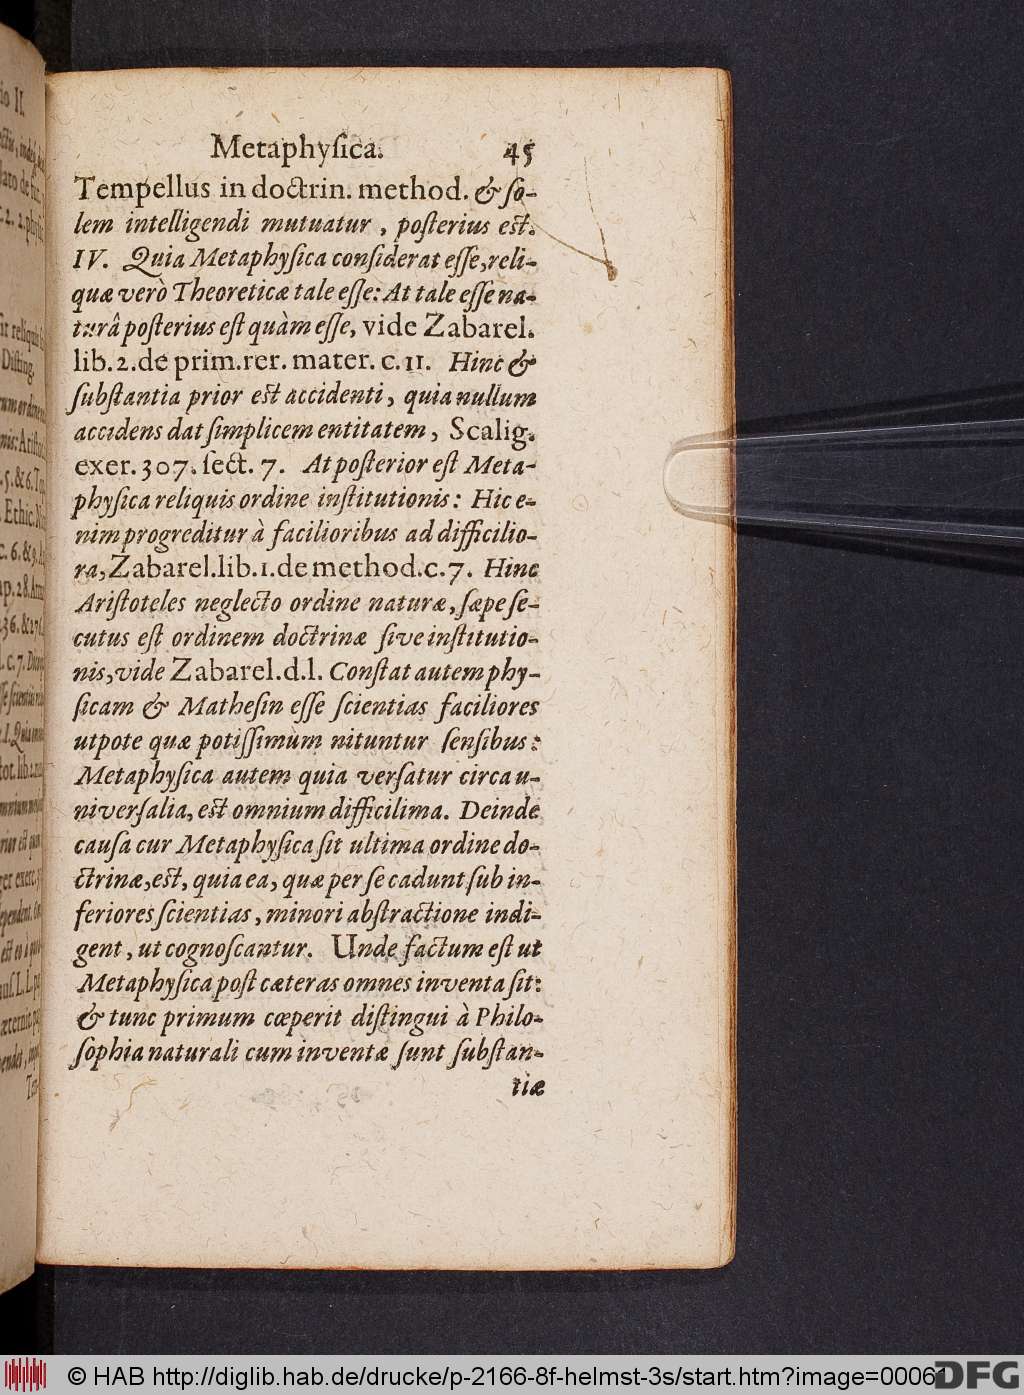 Metaphyſica. 45
Tempellus in doctrin. method. & ſo-
lem intelligendi mutuatur, poſterius est.
IV. Quia Metaphyſica conſiderat eſſe, reli-
quæ verò Theoreticæ tale eſſe: At tale eſſe na-
turâ poſterius eſt quàm eſſe, vide Zabarel.
lib. 2. de prim. rer. mater. c. 11. Hinc &
ſubſtantia prior est accidenti, quia nullum
accidens dat ſimplicem entitatem, Scalig.
exer. 307. ſect. 7. At poſterior eſt Meta-
phyſica reliquis ordine inſtitutionis: Hic e-
nim progreditur à facilioribus ad difficilio-
ra, Zabarel. lib. 1. de method. c. 7. Hinc
Ariſtoteles neglecto ordine naturæ, ſæpe ſe-
cutus eſt ordinem doctrinæ ſive inſtitutio-
nis, vide Zabarel. d. l. Conſtat autem phy-
ſicam & Matheſin eſſe ſcientias faciliores
utpote quæ potiſſimùm nituntur ſenſibus:
Metaphyſica autem quia verſatur circa u-
niverſalia, est omnium difficilima. Deinde
cauſa cur Metaphyſica ſit ultima ordine do-
ctrinæ, est, quia ea, quæ per ſe cadunt ſub in-
feriores ſcientias, minori abſtractione indi-
gent, ut cognoſcantur. Unde factum eſt ut
Metaphyſica poſt cæteras omnes inventa ſit:
& tunc primum cœperit diſtingui à Philo-
ſophia naturali cum inventæ ſunt ſubſtan-
tiæ
© HAB http://diglib.hab.de/drucke/p-2166-8f-helmst-3s/start.htm?image=00061
DFG